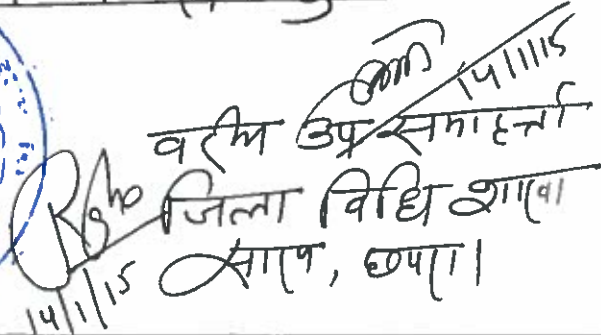 14/1/15
वरीय उप समाहर्त्ता
जिला विधि शाखा
सारण, छपरा।
14/1/15